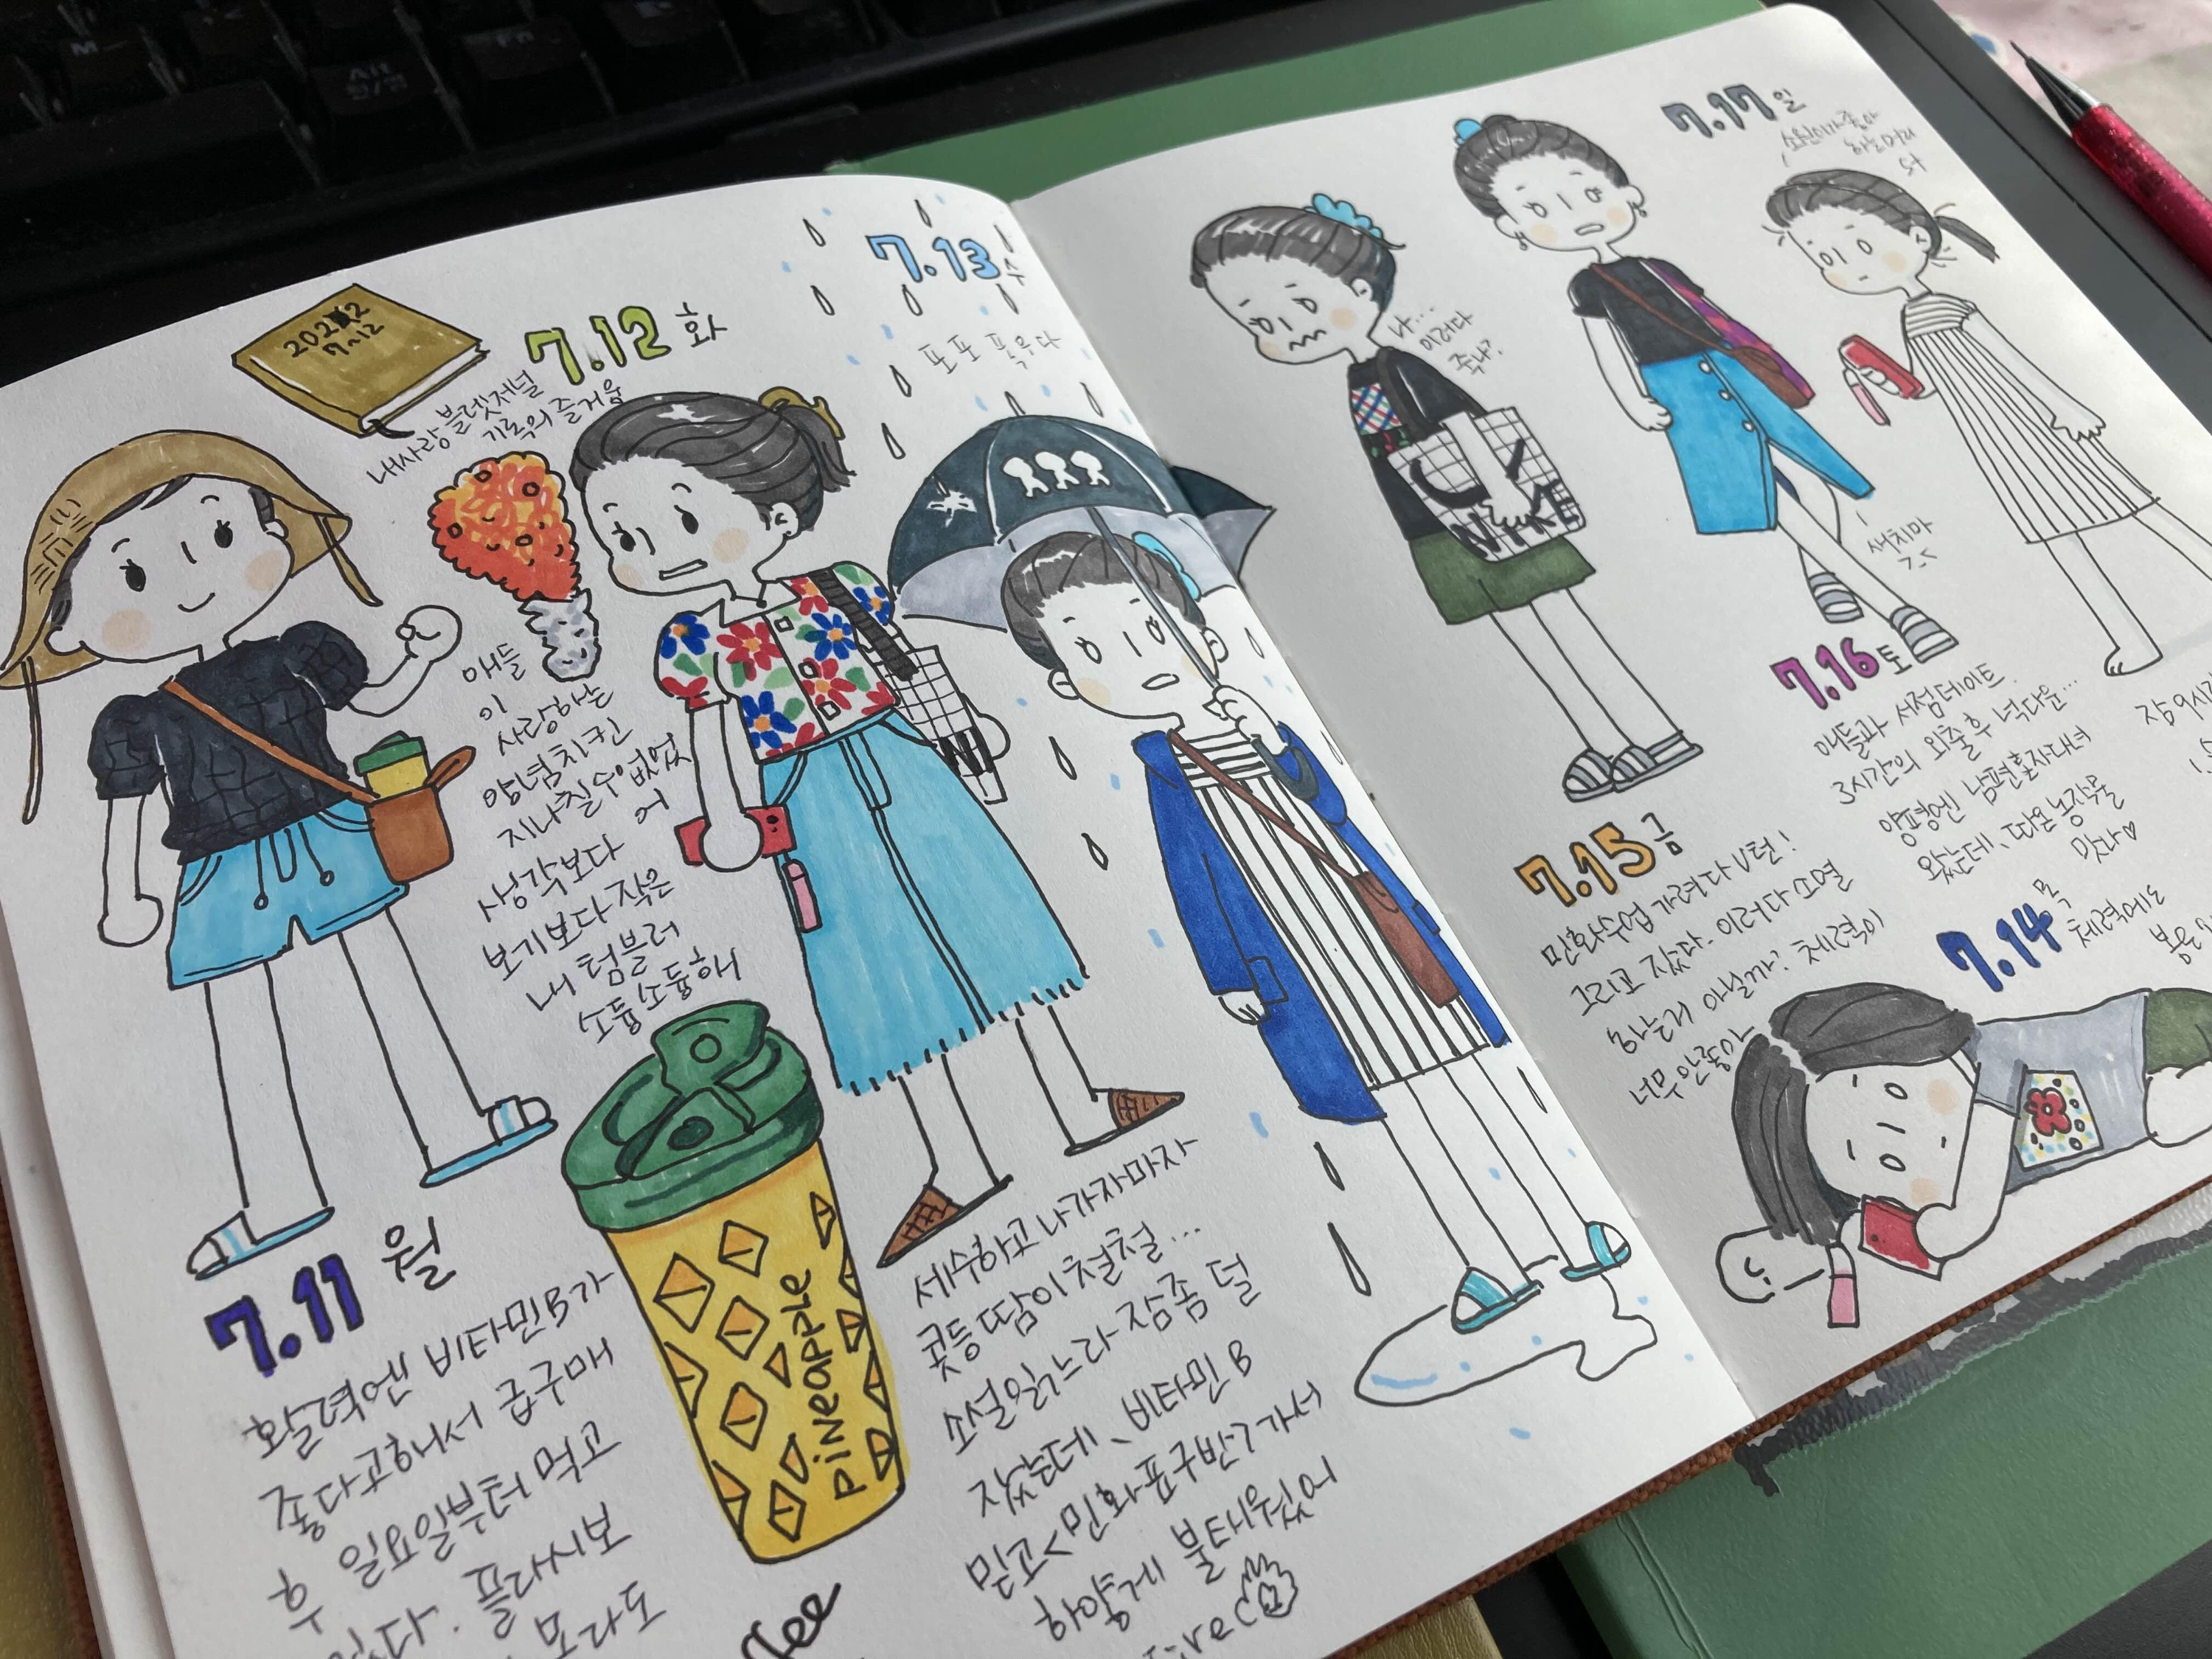 2022
7~12
내사랑 블렛저널
기록의 즐거움
7.12 화
애들
이
사랑하는
양념치킨
지나칠수 없었
어
생각보다
보기보다 작은
내 텀블러
소듕소듕해
PiNeapple
7.11 월
활력엔 비타민B가
좋다고해서 급구매
후 일요일부터 먹고
있다. 플라시보
모라도
7.13 수
포포 폭우다
세수하고 나가자마자
콧등 땀이 철철...
소설읽느라 잠좀 덜
잤는데, 비타민 B
믿고<민화표구반>가서
하얗게 불태웠어
나...
이러다
죽나?
NIKE
7.15 금
민화수업 가려다 U턴!
그리고 잤다. 이러다 소멸
하는거 아닐까? 체력이
너무 안좋아
새치마
7.16 토
애들과 서점데이트
3시간의 외출후 넉다운...
양평엔 남편혼자다녀
왔는데, 따온 농작물
맛나♡
7.14 목
체력에도
7.17 일
하는머리
닷
잠 9시간